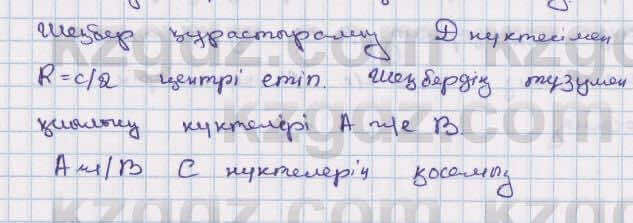 Шеңбер құрастырамыз D нүктесімен
R=c/2 центрі етіп. Шеңбердің түзумен
қиылысу нүктелері A ж/е B.
A ж/B C нүктелерін қосамыз